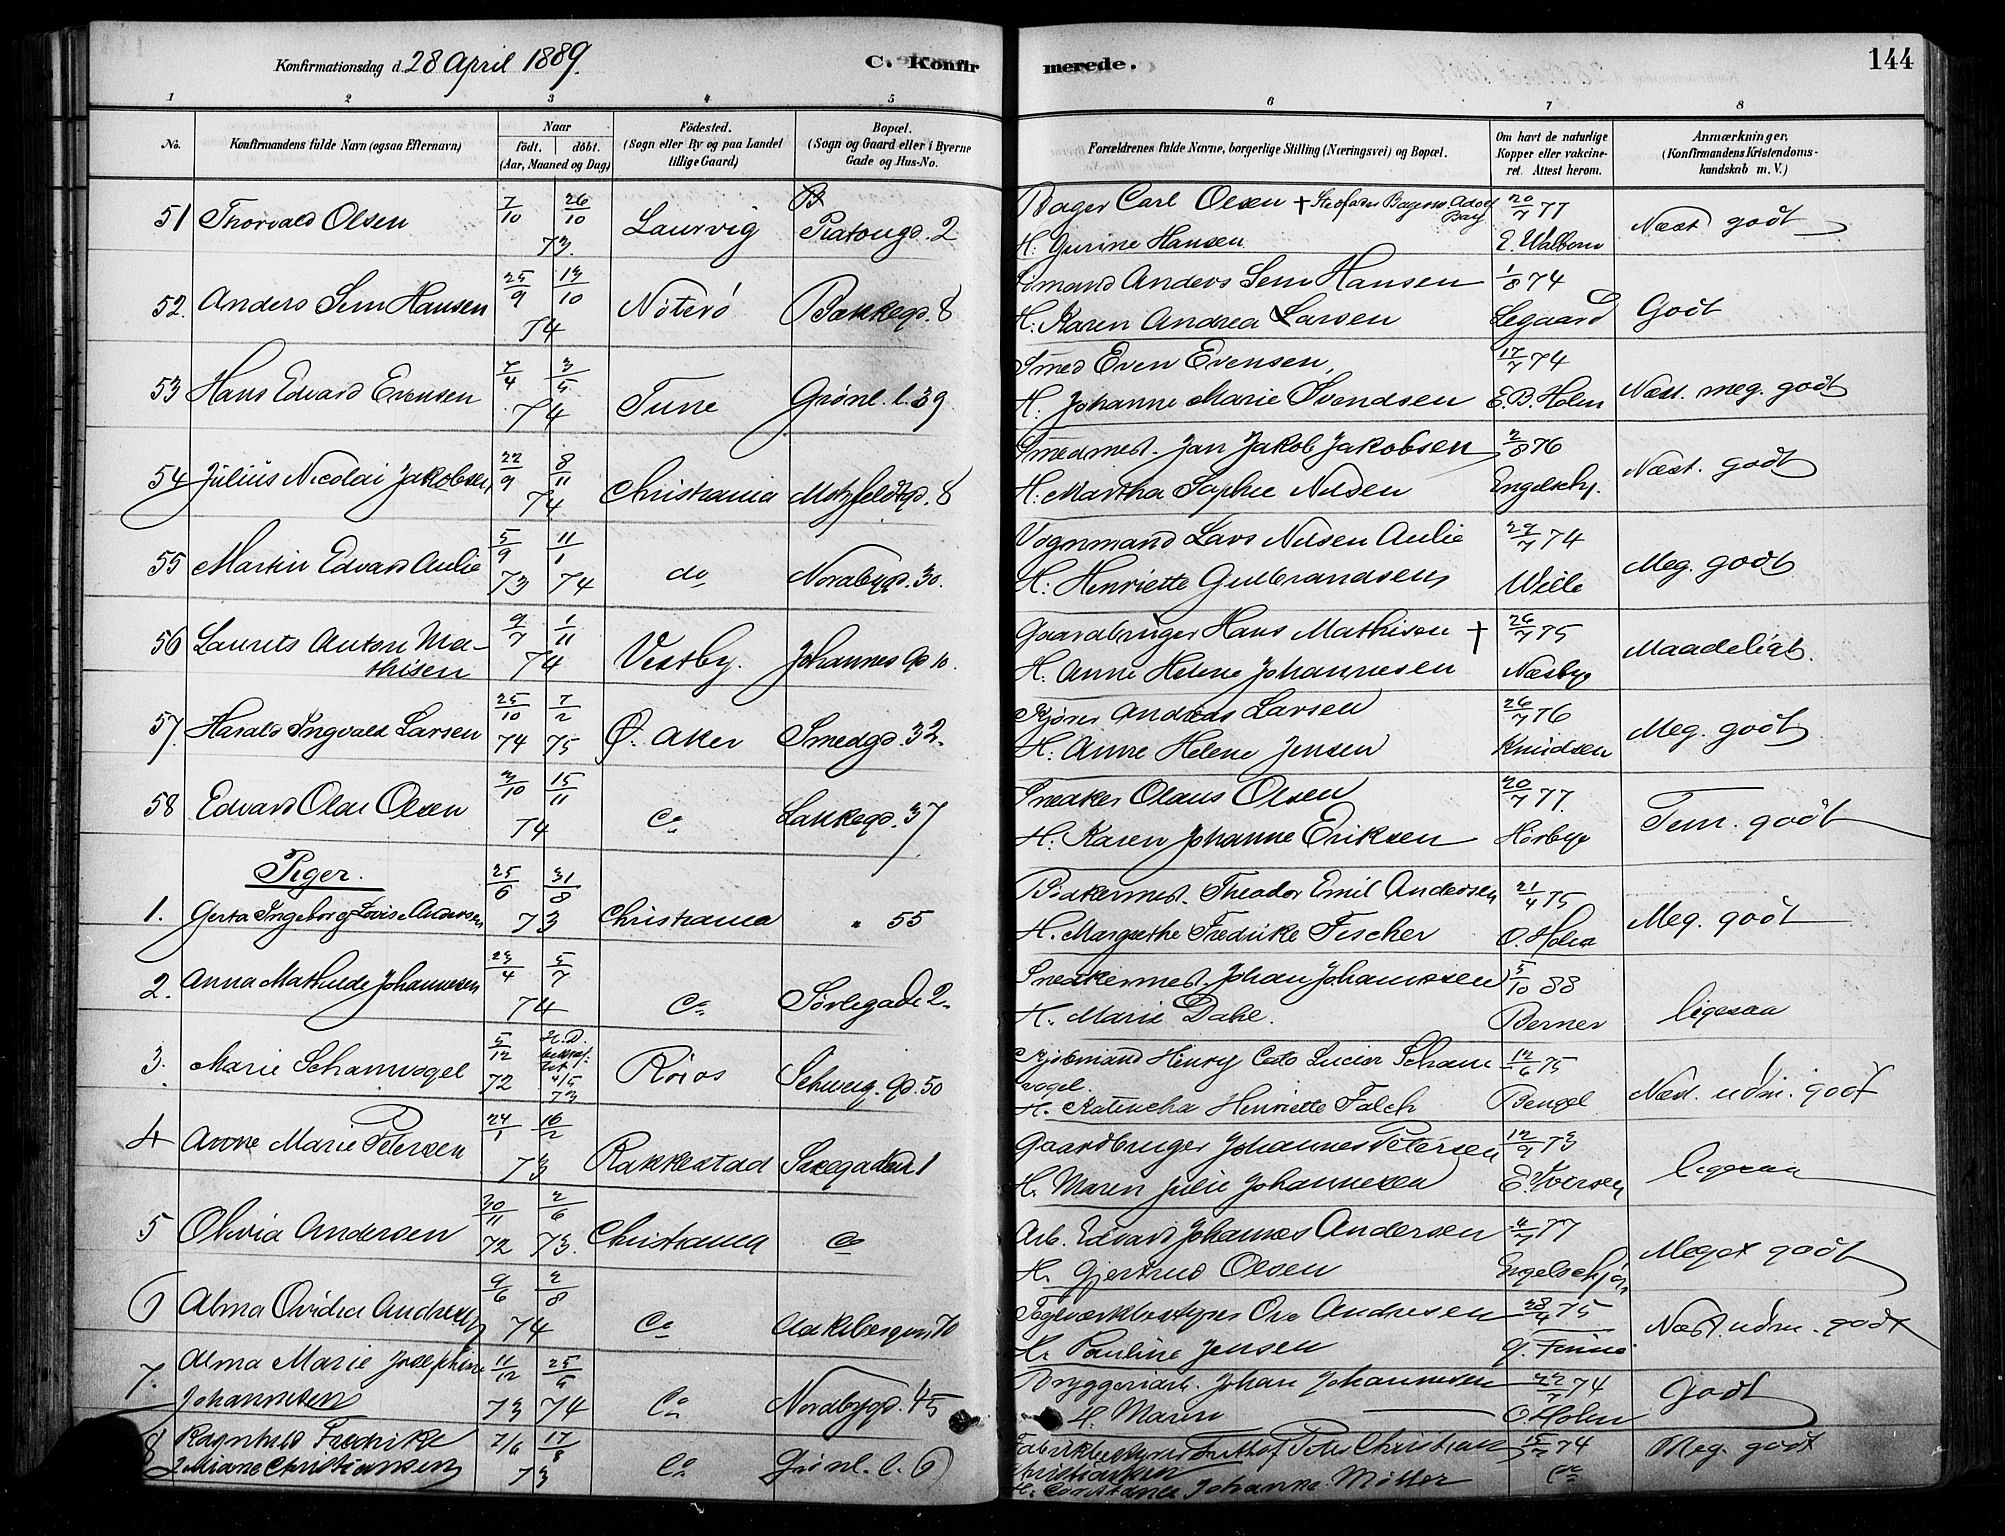 Konfirmationsdag d. 28 April 1889.
C. Konfirmerede.
144
1 2 3 4 5 6 7 8
No.
Konfirmandens fulde Navn (ogsaa Efternavn)
Naar
födt. döbt.
(Aar, Maaned og Dag)
Födested.
(Sogn eller By og paa Landet
tillige Gaard)
Bopæl.
(Sogn og Gaard eller i Byerne
Gade og Hus-No.
Forældrenes fulde Navne, borgerlige Stilling (Næringsvei) og Bopæl.
Om havt de naturlige
Kopper eller vakcine-
ret. Attest herom.
Anmærkninger,
(Konfirmandens Kristendoms-
kundskab m. V.)
51 Thorvald Olsen 7/10 26/10 73. Laurvig Piatougd. 2
Bager Carl Olsen + 20/7 77 Næst godt
H. Gurine Hansen
52. Anders Sem Hansen 25/9 13/10 74 Nøterø Bakkegd. 8
Sømand Anders Sem Hansen 1/8 74 Godt
H. Karen Andrea Larsen Legaard
53 Hans Edvard Evensen 7/4 3/5 74 Tune Grønl. l. 39
Smed Even Evensen, 17/7 74 Næst. meg. godt
H. Johanne Marie Svendsen E. B. Holm
54 Julius Nicolai Jakobsen 22/9 8/11 74 Christiania Motzfeldtgd. 8
Smedmest. Jan Jakob Jakobsen 2/8 76 Næst. godt
H. Martha Sophie Nilsen Engelschj.
55 Martin Edvard Aulie 5/9 11/1 73 74 do Nordbygd. 30.
Vognmand Lars Nilsen Aulie 29/7 74 Meg. godt
H. Henriette Gulbrandsen Wille
56 Laurits Anton Ma-
thisen 9/7 1/11 74 Vestby. Johannes Gd. 10.
Gaardbruger Hans Mathisen + 26/7 75 Maadeligt.
H. Anne Helene Johannesen Næsbye
57. Harald Ingvald Larsen 25/10 7/2 74 75 Ø. Aker Smedgd. 32.
Kjører Andreas Larsen 26/7 76 Meg. godt
H. Anne Helene Jensen Knudsen
58 Edvard Olaf Olsen 3/10 15/11 74 Co Lakkegd. 37
Snedker Olaus Olsen 20/7 77. Tem. godt
H. Karen Johanne Eriksen Hørbye
Piger.
1. Gerta Ingeborg Lovise Andersen 25/6 31/8 73 Christiania " 55
Bødkermest. Theodor Emil Andersen 21/4 75 Meg. godt
H. Margrethe Fredrikke Fischer O. Holm
2. Anna Mathilde Johannesen 23/4 5/7 74 Co Sørligade 2.
Snedkermest. Johan Johannesen 5/10 88 ligesaa
H. Marie Dahl. Berner
3. Marie Schanvogel 5/12 72 H. D. 4/5 73 Røros Schweig. Gd. 50
Kjøbmand Henry Cato Lucian Schan 12/6 75 Næst. udm. godt
vogel.
H. Katincha Henriette Falch Bengel
4 Anne Marie Petersen 24/1 16/2 73 Rakkestad Saxegaden 1
Gaardbruger Johannes Petersen 12/9 73 ligesaa
H. Maren Julie Johannesen E. Iversen
5 Olivia Andersen 30/11 2/6 72 73. Christiania Co
Arb. Edvard Johannes Andersen 4/7 77 Meget godt
H. Gjertrud Olsen Engelschjøn
6 Alma Ovidia Andresen 9/6 2/8 74 Co Aakebergvn. 70
Teglværkbestyrer Ove Andresen 28/4 75 Næst. udm. godt
H. Pauline Jensen
7. Alma Marie Josephine 11/12 25/5
Johannesen 73 74 Co Nordbygd. 45
Bryggeriarb. Johan Johannesen 22/7 74 Godt
H. Maren — O Holm
8 Ragnhild Fredrikke 7/6 17/8
Christiansen 73 Co Grønl. l. 6
Fabrikbestyrer Frithjof Peter Christian 15/7 74 Meg. godt
Christiansen
H. Constance Johanna Møller Co